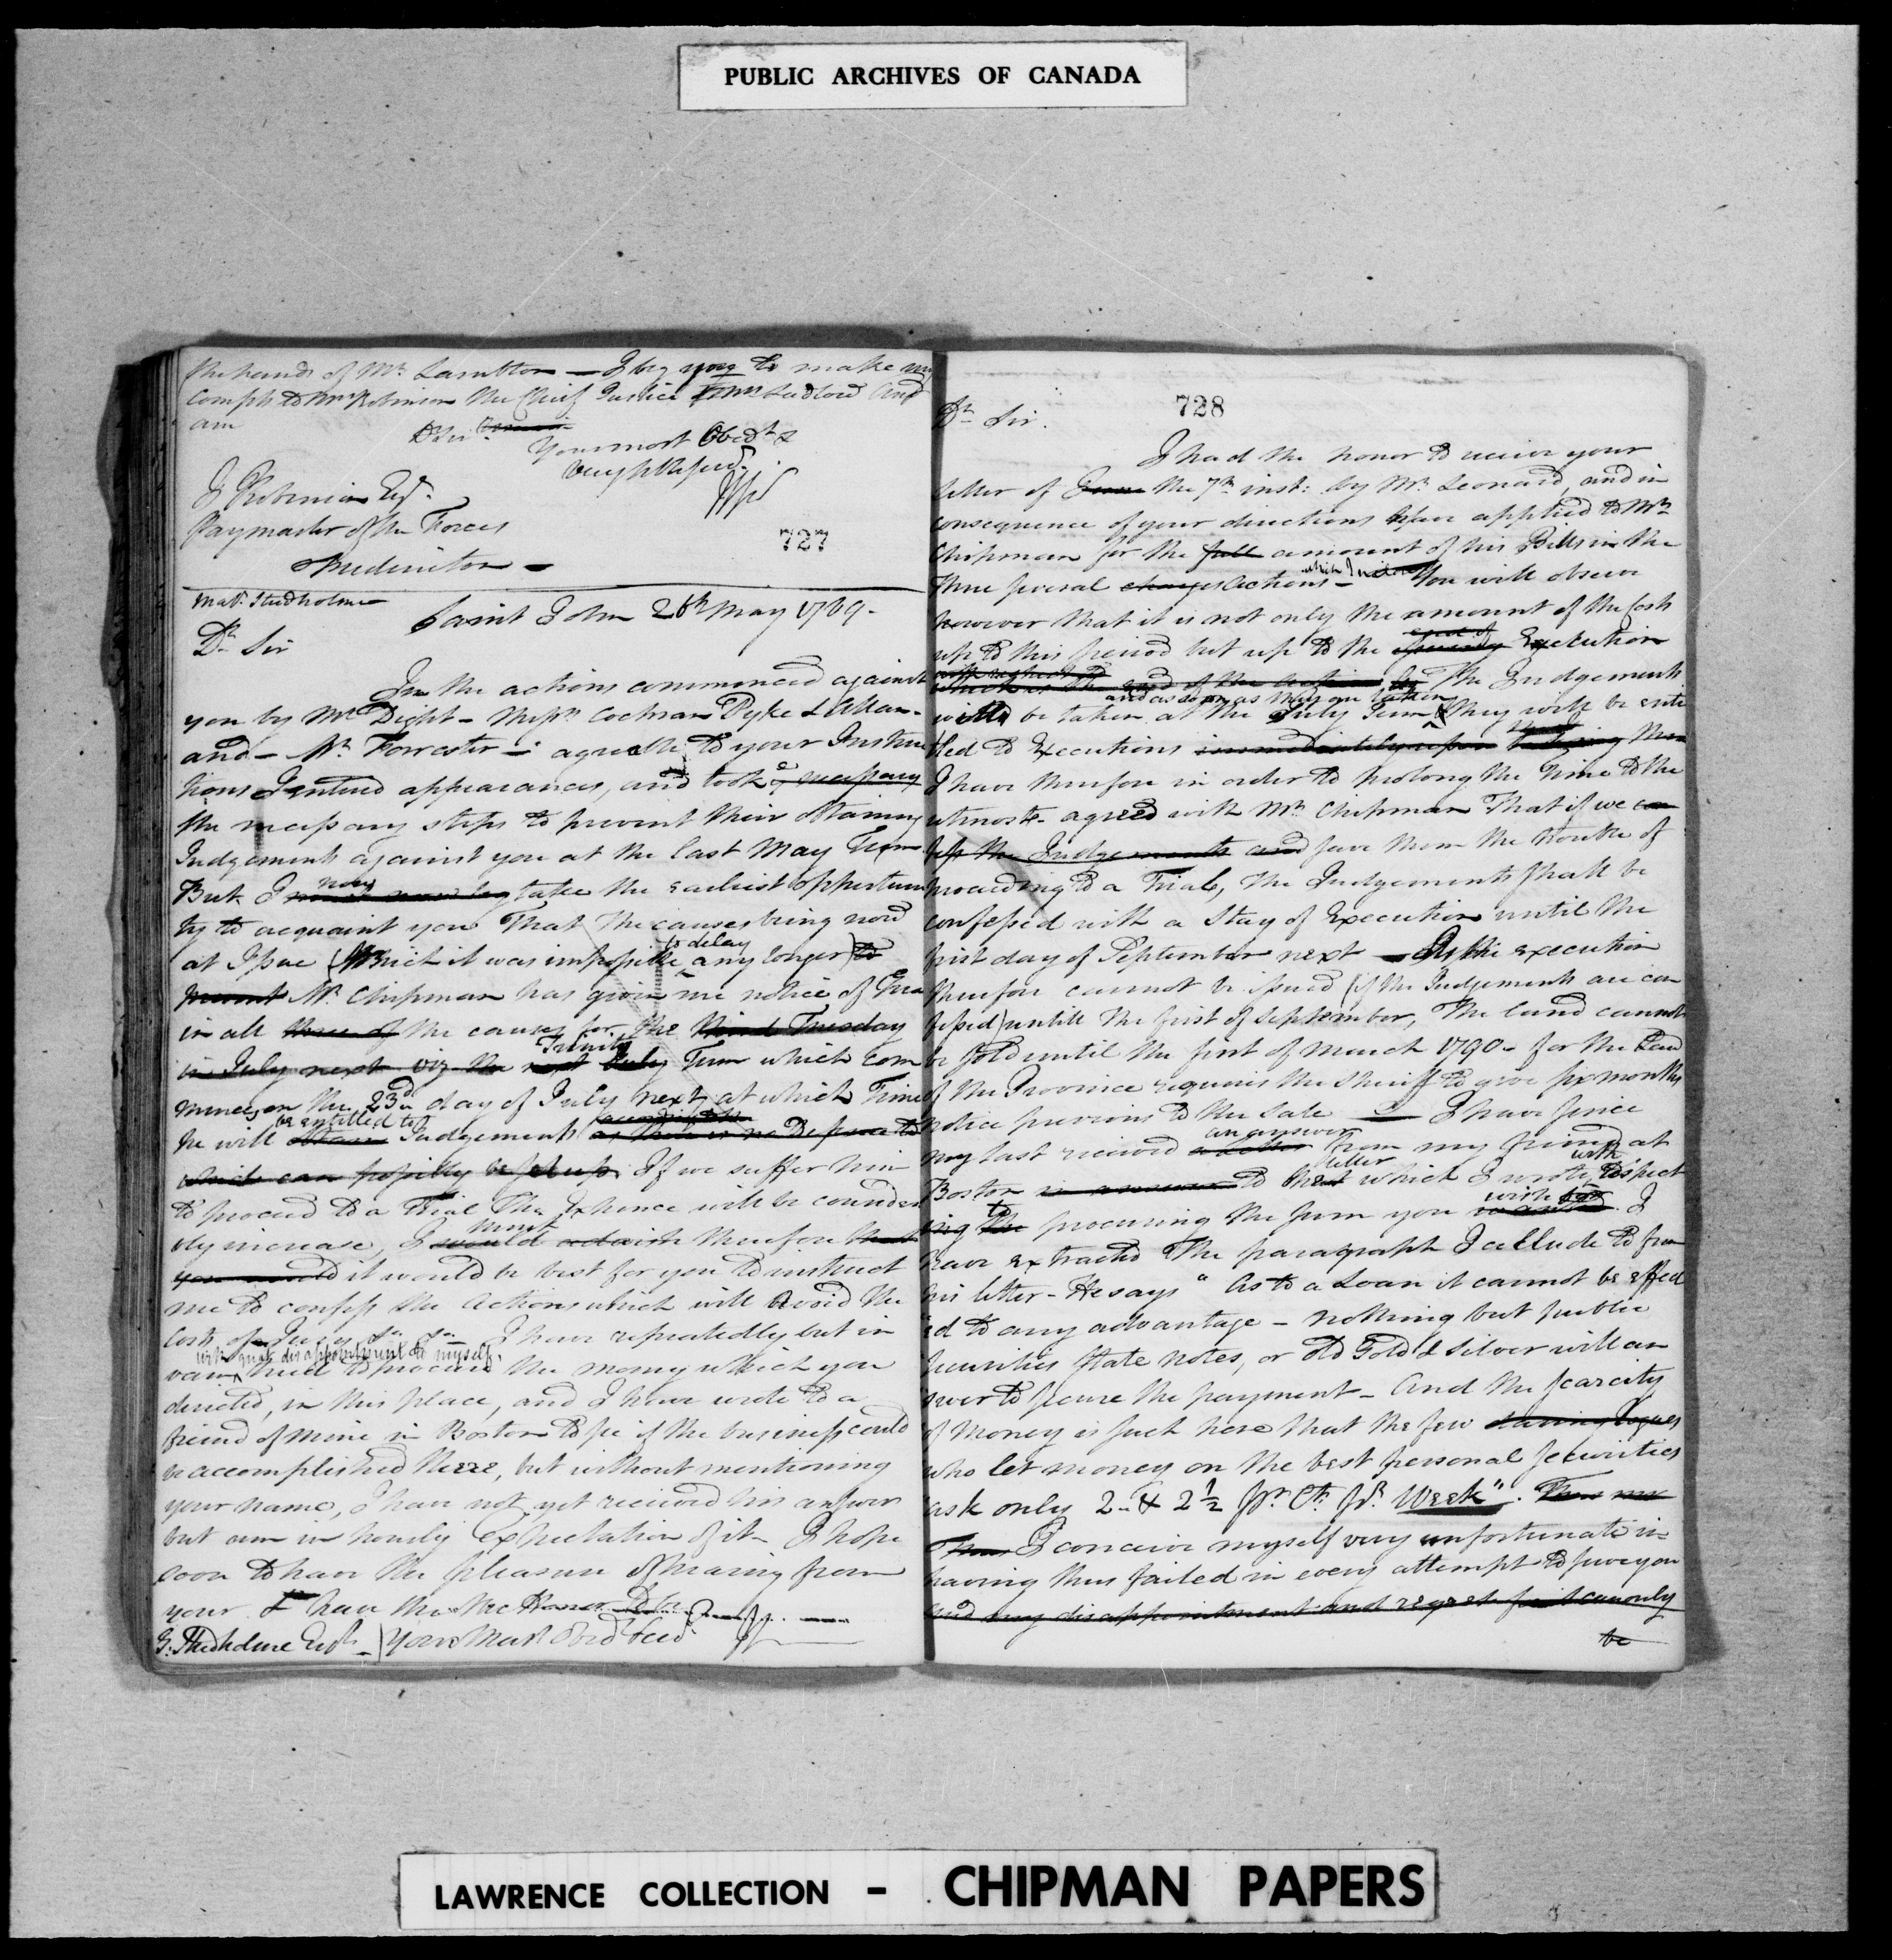 PUBLIC ARCHIVES OF CANADA
the hands of Mr. Lambton — I beg you to make my
Compts to Mrs Robinson the Chief Justice Ludlow and
am
Dr Sir
Your most Obedt &
J Robinson Esqr.
Paymaster of the Forces
Fredericton —
727
Maj. Studholme
Saint John 26th May 1789.
Dr Sir
In the actions commenced against
you by Mr Dight — Messrs Cochran Dyke & Allan.
and — Mr Forrester — agreeable to your Instruc
tions I entered appearances, and took necessary
the necessary steps to prevent their obtaining
Judgements against you at the last May Term
But I now must now beg take the earliest opportuni
ty to acquaint you That the causes being now
at Issue (Which it was impossible to delay any longer) to
prevent Mr Chipman has given me notice of Trial
in all three of the causes for the third Tuesday
in July next viz the next July Trinity Term which com
mences on the 23d day of July next at which Time
he will obtain be entitled to Judgements accordingly as there is no Defence to
which can possibly be set up. If we suffer him
to proceed to a Trial The Expence will be consider
ably increase, I would must advise therefore that
you would it would be best for you to instruct
me to confess the actions which will avoid the
Costs of Juries &c &c — I have repeatedly but in
with great disappointment to myself,
vain tried to procure the money which you
directed, in this place, and I have wrote to a
friend of mine in Boston to see if the business could
be accomplished there, but without mentioning
your name, I have not yet received his answer
but am in hourly Expectation of it — I hope
soon to have the pleasure of hearing from
your & have the the Honor to be
G. Studholme Esqr — Your Most Obed
728
Dr Sir.
I had the honor to receive your
letter of from the 7th inst: by Mr Leonard, and in
consequence of your directions have applied to Mr
Chipman for the full amount of his Bills in the
three several charges actions — which I inclose You will observe
however that it is not only the amount of the Costs
up to this period but up to the issuing end of Execution
which is the end of the action by The Judgements
will be taken at the July Term and as soon as they are taken they will be enti
tled to Executions immediately upon
I have therefore in order to prolong the time to the
utmost — agreed with Mr Chipman That if we con
fess the Judgements and save them the trouble of
proceeding to a Trial, the Judgements shall be
confessed with a Stay of Execution until the
first day of September next — As the execution
therefore cannot be issued (if the Judgements are con
fessed) untill the first of September, The land cannot
be sold until the first of March 1790 — for the Law
of the Province requires the Sheriff to give six months
notice previous to the sale — I have since
my last received a letter an answer from my friend at
Boston in answer to the letter which I wrote with respect
ing the to procuring the sum you wanted wish for. I
have extracted The paragraph I allude to from
his letter — He says "As to a Loan it cannot be effect
"ed to any advantage — nothing but public
securities State notes, or old Gold & silver will an
swer to secure the payment — And the scarcity
of Money is such here that the few daring Rogues
who let money on the best personal securities
ask only 2 — & 2½ pr Ct. pr Week". Thus
Thus I conceive myself very unfortunate in
having thus failed in every attempt to serve you
and my disappointment and regret for it can only
be
LAWRENCE COLLECTION - CHIPMAN PAPERS